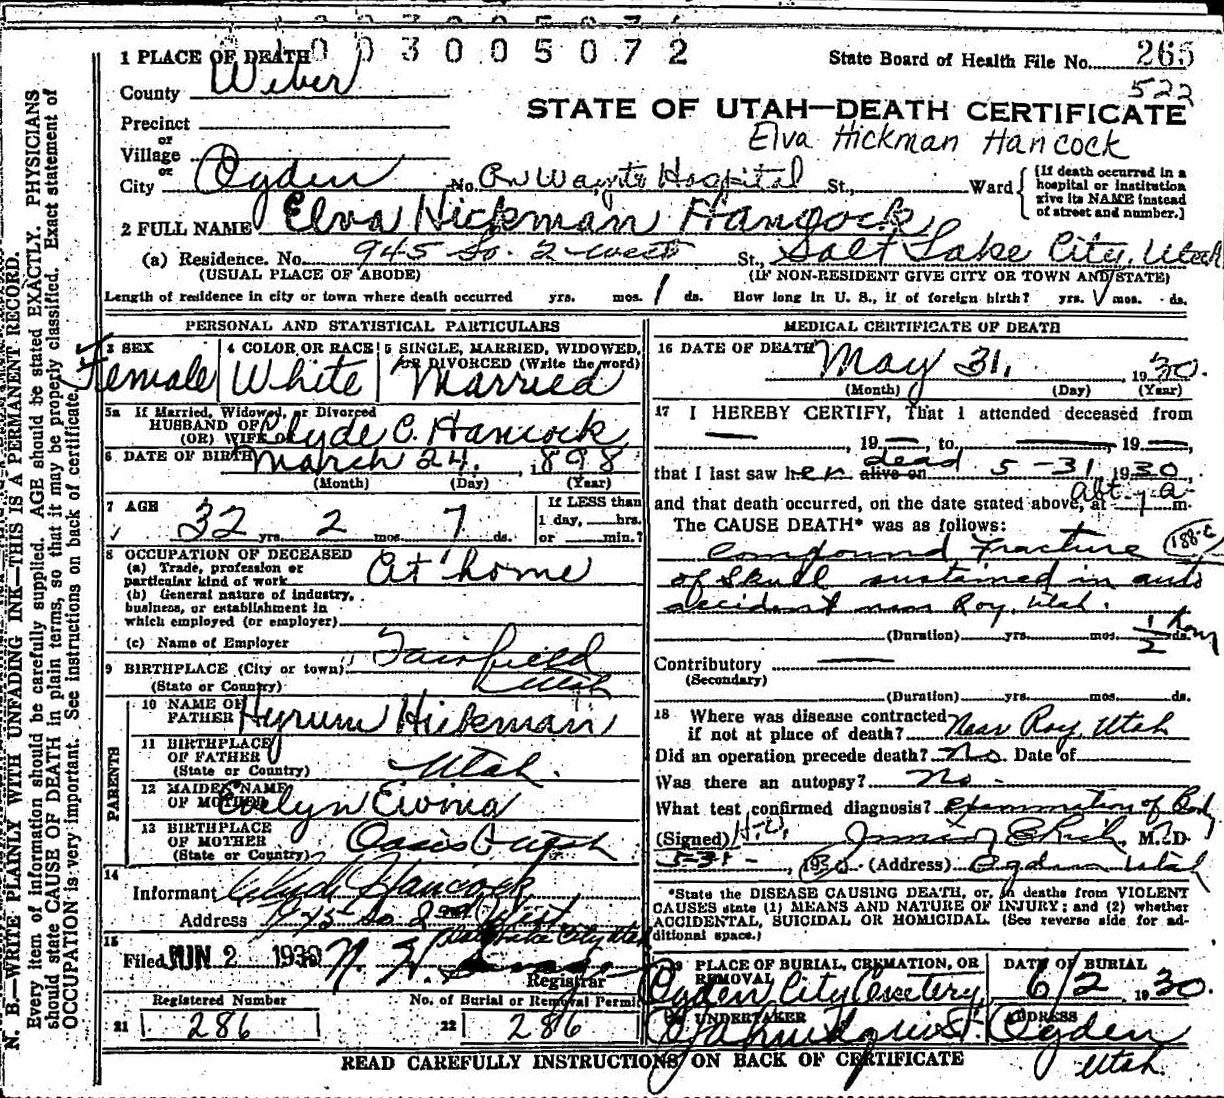 003005072
1 PLACE OF DEATH
State Board of Health File No. 265
522
County Weber
STATE OF UTAH—DEATH CERTIFICATE
Precinct
or
Village
Elva Hickman Hancock
or
City Ogden No. Hospital St., Ward {[If death occurred in a hospital or institution give its NAME instead of street and number.]
2 FULL NAME Elva Hickman Hancock
(a) Residence. No. 945 So. 2 West St., Salt Lake City, Utah
(USUAL PLACE OF ABODE) (IF NON-RESIDENT GIVE CITY OR TOWN AND STATE)
Length of residence in city or town where death occurred yrs. mos. 1 ds. How long in U. S., if of foreign birth? yrs. mos. ds.
PERSONAL AND STATISTICAL PARTICULARS
3 SEX Female
4 COLOR OR RACE White
5 SINGLE, MARRIED, WIDOWED, OR DIVORCED (Write the word) Married
5a If Married, Widowed, or Divorced
HUSBAND OF
(OR) WIFE OF Clyde C. Hancock
6 DATE OF BIRTH March 24, 1898
(Month) (Day) (Year)
7 AGE 32 yrs. 2 mos. 7 ds.
If LESS than
1 day, hrs.
or min.?
8 OCCUPATION OF DECEASED
(a) Trade, profession or
particular kind of work At home
(b) General nature of industry,
business, or establishment in
which employed (or employer)
(c) Name of Employer
9 BIRTHPLACE (City or town) Fairfield
(State or Country) Utah
PARENTS
10 NAME OF
FATHER Hyrum Hickman
11 BIRTHPLACE
OF FATHER
(State or Country) Utah.
12 MAIDEN NAME
OF MOTHER Evelyn Ewing
13 BIRTHPLACE
OF MOTHER
(State or Country) Oasis Utah
14
Informant Clyde Hancock
Address 945 So 2nd West
Salt Lake City Utah
15
Filed JUN 2 1930
Registrar
Registered Number
21 286
No. of Burial or Removal Permit
22 286
MEDICAL CERTIFICATE OF DEATH
16 DATE OF DEATH May 31, 1930.
(Month) (Day) (Year)
17 I HEREBY CERTIFY, That I attended deceased from
— , 19 — , to — 19 —
that I last saw her alive on dead 5-31 1930,
and that death occurred, on the date stated above, at abt. 1 a m.
The CAUSE DEATH* was as follows:
Compound Fracture
of Skull sustained in auto
accident near Roy, Utah.
(Duration) yrs. mos. 1/2 hour ds.
Contributory —
(Secondary)
(Duration) yrs. mos. ds.
18 Where was disease contracted
if not at place of death? Near Roy, Utah
Did an operation precede death? No. Date of
Was there an autopsy? No.
What test confirmed diagnosis? Examination of Body
(Signed) M. D.
5-31-, 1930 (Address) Ogden Utah
*State the DISEASE CAUSING DEATH, or, in deaths from VIOLENT
CAUSES state (1) MEANS AND NATURE OF INJURY; and (2) whether
ACCIDENTAL, SUICIDAL OR HOMICIDAL. (See reverse side for ad-
ditional space.)
19 PLACE OF BURIAL, CREMATION, OR
REMOVAL Ogden City Cemetery
DATE OF BURIAL 6/2 1930.
20 UNDERTAKER
ADDRESS Ogden
Utah.
READ CAREFULLY INSTRUCTIONS ON BACK OF CERTIFICATE
N. B.—WRITE PLAINLY WITH UNFADING INK—THIS IS A PERMANENT RECORD.
Every item of information should be carefully supplied. AGE should be stated EXACTLY. PHYSICIANS
should state CAUSE OF DEATH in plain terms, so that it may be properly classified. Exact statement of
OCCUPATION is very important. See instructions on back of certificate.